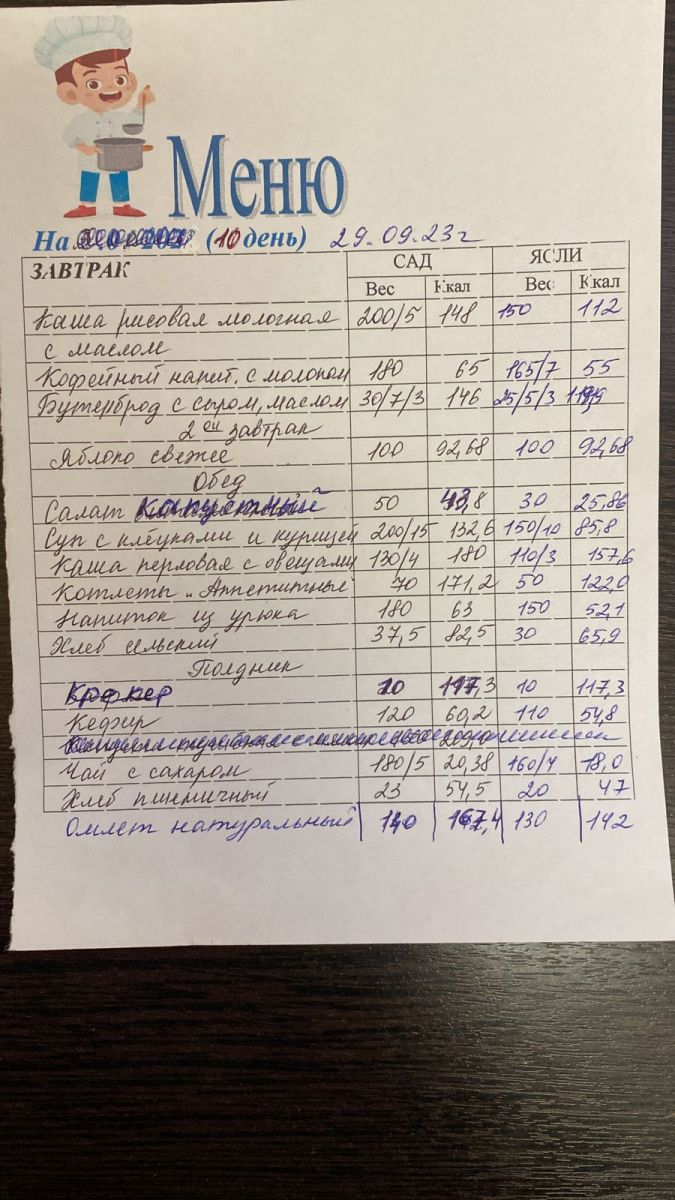 Меню
На (10 день) 29.09.23г
ЗАВТРАК САД ЯСЛИ
Вес Ккал Вес Ккал
Каша рисовая молочная 200/5 148 150 112
с маслом
Кофейный напит. с молоком 180 65 165/7 55
Бутерброд с сыром, маслом 30/7/3 146 25/5/3
2ой завтрак
Яблоко свежее 100 92,68 100 92,68
Обед
Салат капустный 50 43,8 30 25,86
Суп с клёцками и курицей 200/15 132,6 150/10 85,8
Каша перловая с овещами 130/4 180 110/3 157,6
Котлеты "Аппетитные" 70 171,2 50 122,0
Напиток из урюка 180 63 150 52,1
Хлеб сельский 37,5 82,5 30 65,9
Полдник
Крекер 10 117,3 10 117,3
Кефир 120 60,2 110 54,8
Чай с сахаром 180/5 20,38 160/4 18,0
Хлеб пшеничный 23 54,5 20 47
Омлет натуральный 140 167,4 130 142